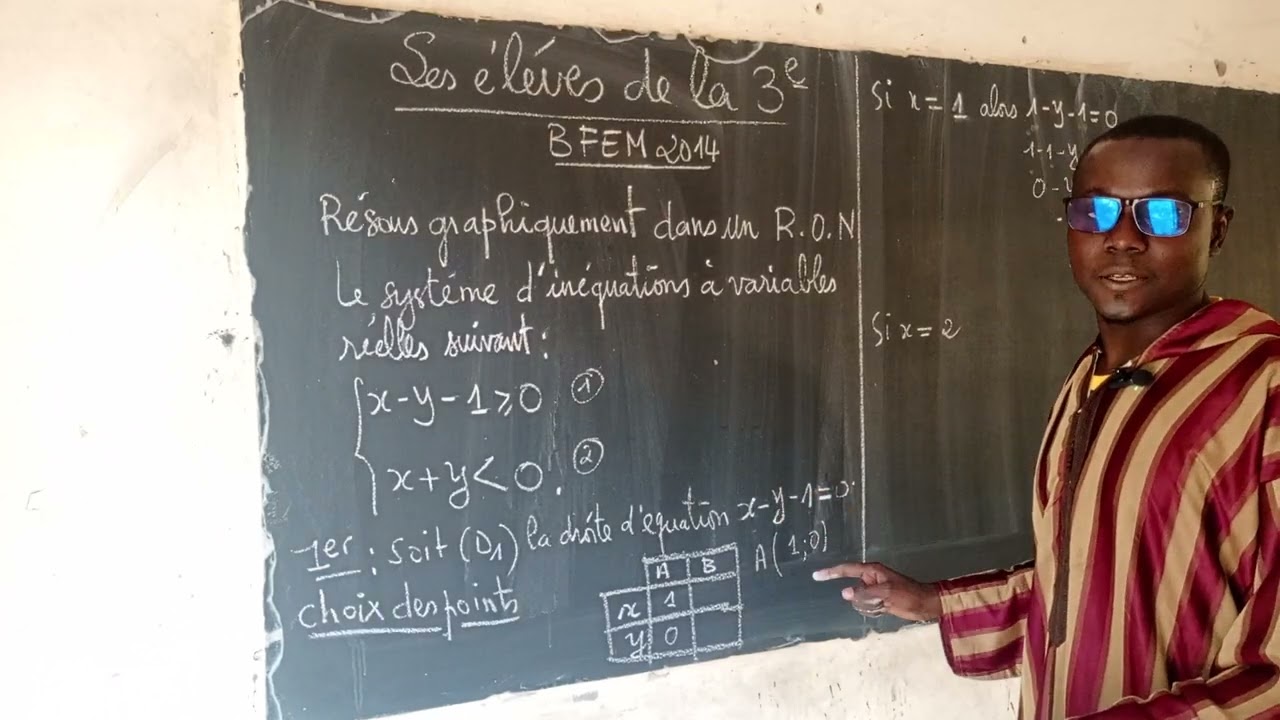 Les éléves de la 3e
BFEM 2014
Résous graphiquement dans un R.O.N
Le systéme d'inéquations à variables
réelles suivant:
x-y-1⩾0 ①
x+y<0. ②
1er: soit (D1) la droite d'equation x-y-1=0.
choix des points
A B
x 1
y 0
A(1;0)
Si x=1 alors 1-y-1=0
1-1-y
0-
Si x=2